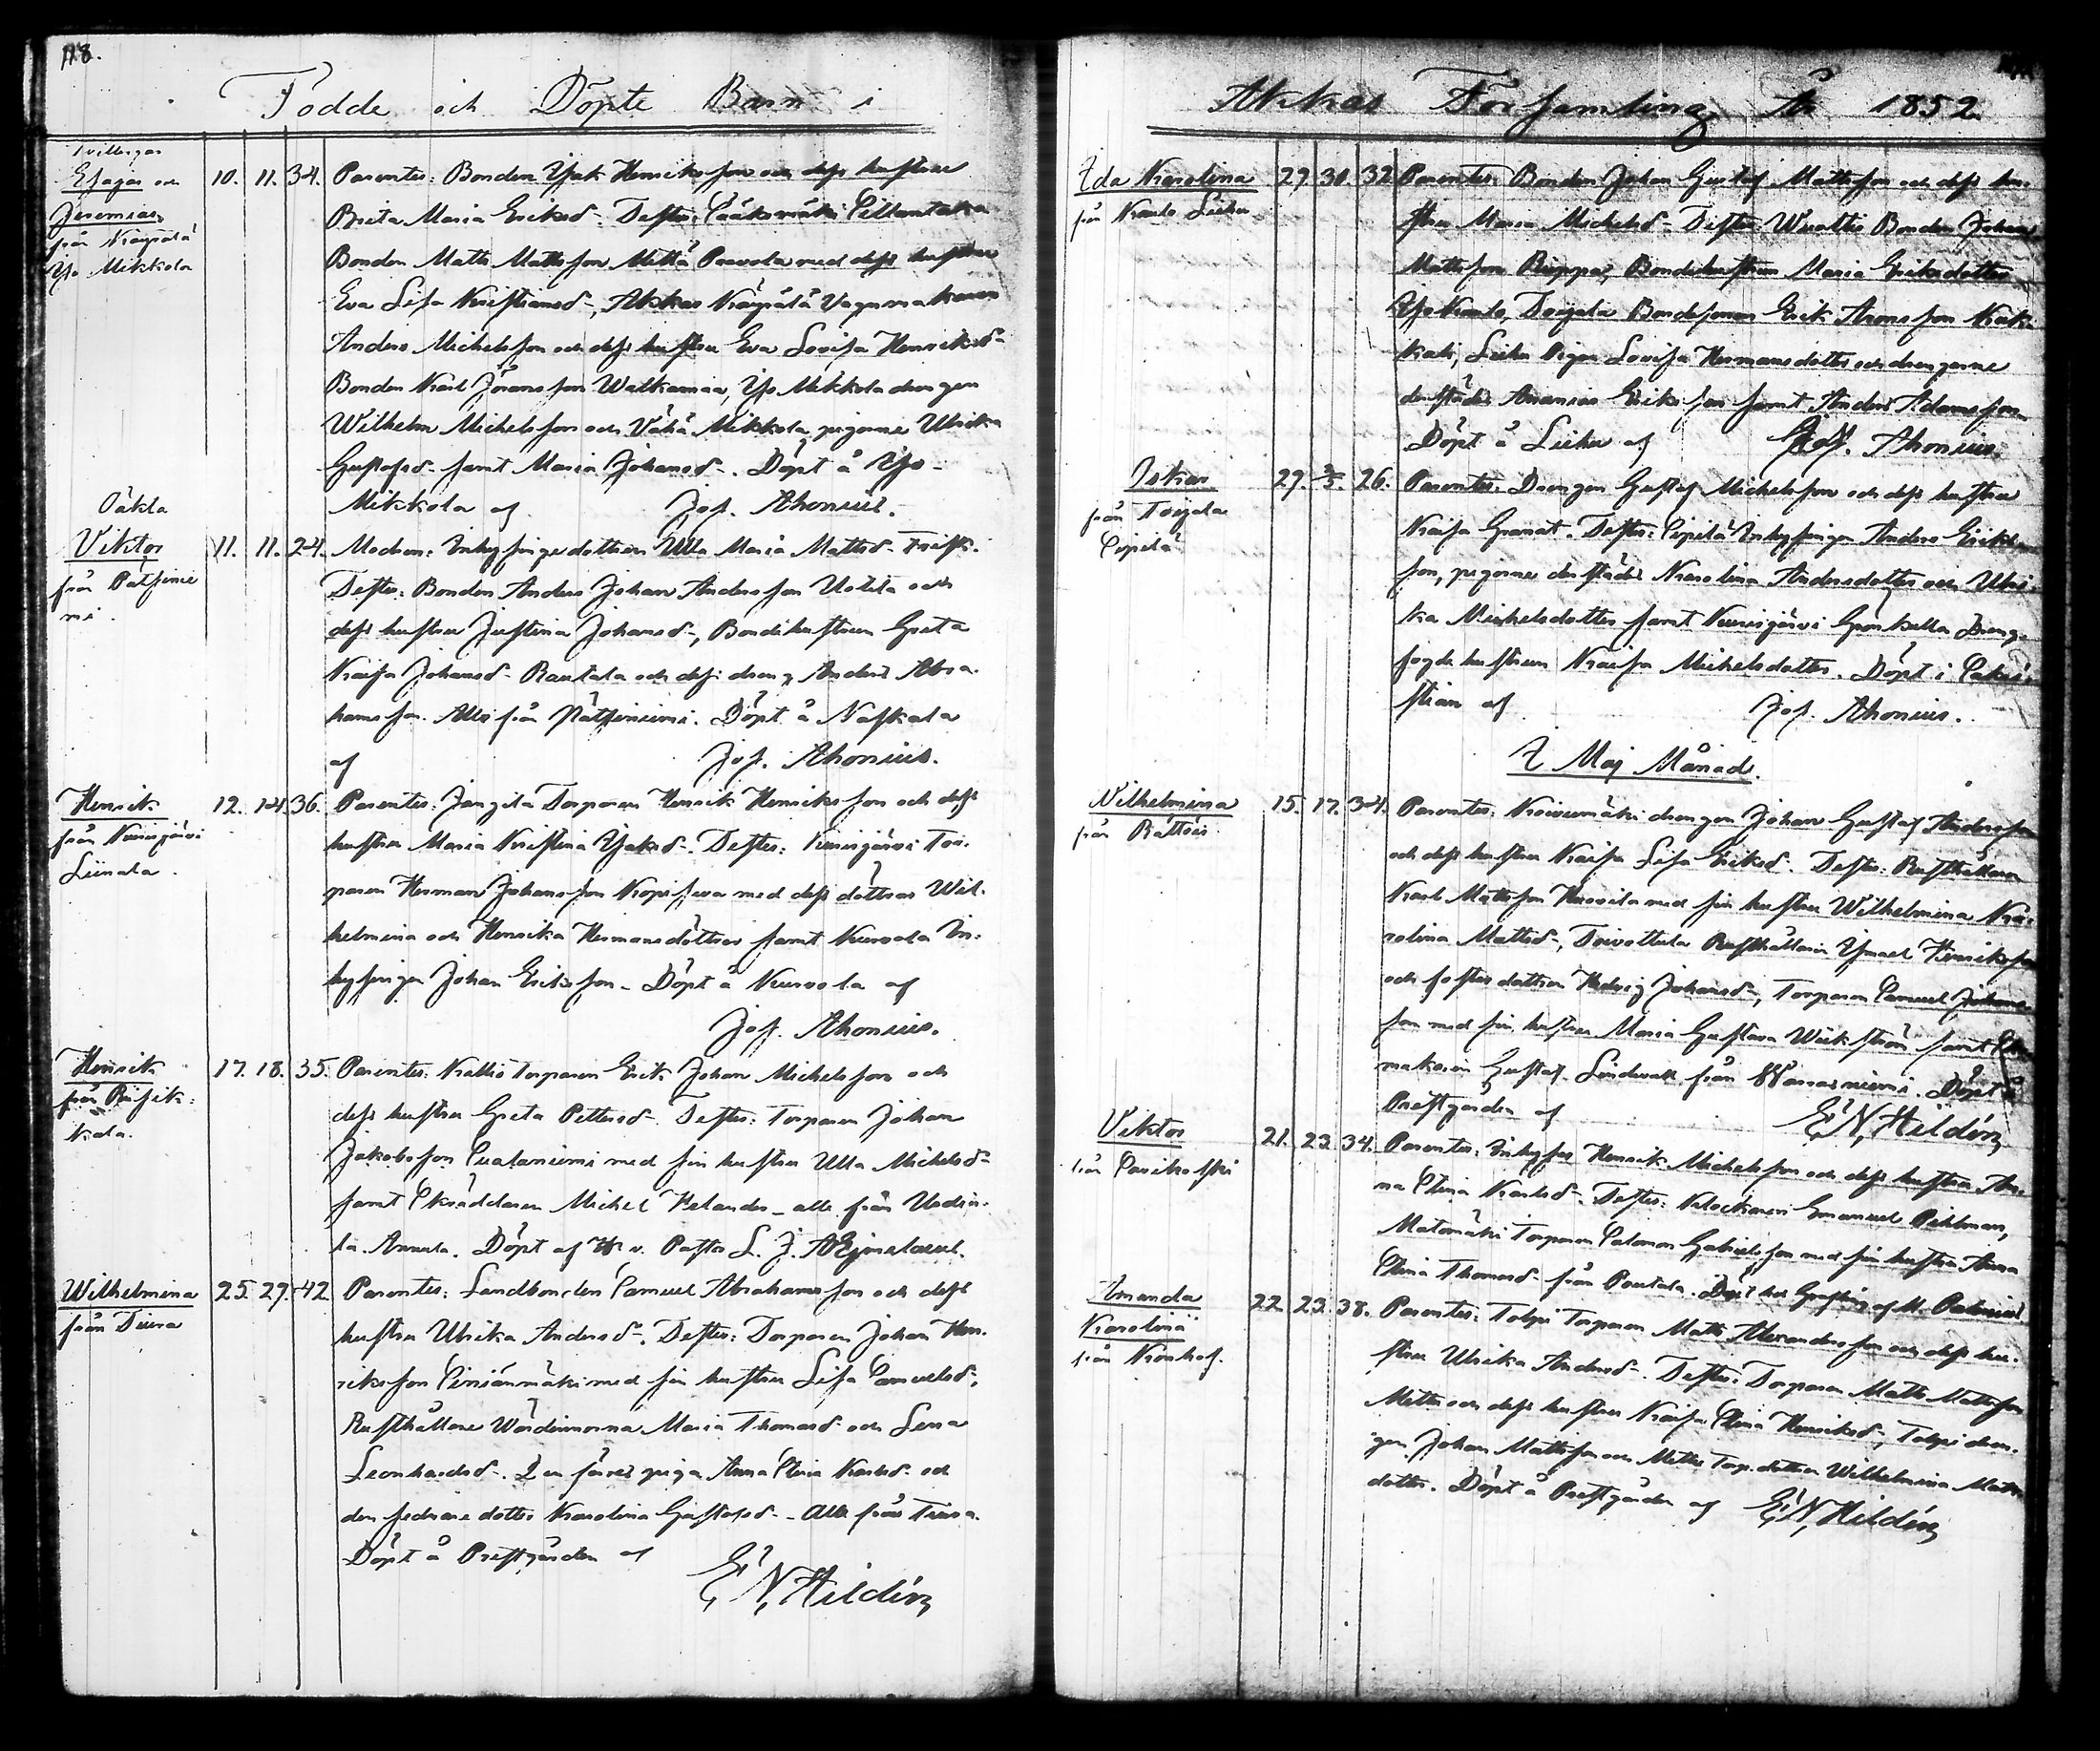 118.
Födde och Döpte Barn i
Tvillingar
Esajas och
Jeremias
från Käyrälä
Yli Mikkola
10. 11. 34. Parentes: Bonden Isak Henriksson och dess hustru
Brita Maria Eriksd. Testes: Sääksmäki
Bonden Matts Mattsson Mälli Paavola med dess hustru
Eva Lisa Kristiansd., Akkas Käyrälä Vagnmakaren
Anders Michelsson och dess hustru Eva Lovisa Henriksd.
Bonden Karl Göransson Walkama, Yli Mikkola drängen
Wilhelm Michelsson och Vähä Mikkola pigorna Ulrika
Gustafsd. samt Maria Johansd. Döpt å Yli
Mikkola af Jos. Ahonius.
Oäkta
Viktor
från Pätsinie
mi.
11. 11. 24. Modren: Inhysingedottren Ulla Maria Mattsd.
Testes: Bonden Anders Johan Andersson Uotila och
dess hustru Justina Johansd., Bondehustrun Greta
Kaisa Johansd. Rautala och dess dräng Anders Abra
hamsson. Alla från Pätsiniemi. Döpt å Naskala
af Jos. Ahonius.
Henrik
från Kurisjärvi
Liinala.
12. 14. 36. Parentes: Torparen Henrik Henriksson och dess
hustru Maria Kristina Isaksd. Testes: Kurisjärvi Tor-
paren Herman Johansson med dess döttrar Wil-
helmina och Henrika Hermansdöttrar samt Kurvola In-
hysingen Johan Eriksson. Döpt å Kurvola af
Jos. Ahonius.
Henrik
från Riisik-
kala.
17. 18. 35. Parentes: Kallio Torparen Erik Johan Michelsson och
dess hustru Greta Pettersd. Testes: Torparen Johan
Jakobsson Sualaniemi med sin hustru Ulla Michelsd.
samt Skräddaren Michel Helander alla från Urdia-
la Annula. Döpt af V. Pastor L. J. Ahlstubbe.
Wilhelmina
från Tiura
25. 27. 42. Parentes: Landbonden Samuel Abrahamsson och dess
hustru Ulrika Andersd. Testes: Torparen Johan Hen-
riksson med sin hustru Lisa Samuelsd.,
Rusthållare Wärdinnorna Maria Thomasd. och Lena
Leonhardsd. Den förres piga Anna Stina Karlsd. och
den sednare dotter Karolina Gustafsd. Alla från Tiura.
Döpt å Prestgården af E. N. Hildén
Akkas Församling År 1852.
Ida Karolina
från Kanto
29. 30. 32. Parentes: Bonden Johan Gustaf Mattsson och dess hu-
stru Maria Michelsd. Testes: Bonden Johan
Mattsson Reippa, Bondehustrun Maria Eriksdotter
Toijala Bondesonen Erik Aronsson
Pigan Lovisa Hermansdotter och drängarne
derstädes Ananias Eriksson samt Anders Adamsson
Döpt å af Jos. Ahonius.
Oskar
från Toijala
Sipilä
29. 2/5. 26. Parentes: Drängen Gustaf Michelsson och dess hustru
Kaisa Granat. Testes: Sipilä Inhysingen Anders Eriks-
son, pigorna derstädes Karolina Andersdotter och Ulri-
ka Michelsdotter samt Kurisjärvi Dräng-
fogde hustrun Kaisa Michelsdotter. Döpt i Sakri-
stian af Jos. Ahonius.
I Maj Månad.
Wilhelmina
från Rättöis
15. 17. 34. Parentes: Koivumäki drängen Johan Gustaf Andersson
och dess hustru Kaisa Lisa Eriksd. Testes: Rusthållaren
Karl Mattsson Heovila med sin hustru Wilhelmina Ka-
rolina Mattsd., Toivottula Rusthållaren Ismael Henriksson
och fosterdottren Hedvig Johansd., Torparen Samuel Johans-
son med sin hustru Maria Gustava Wikström samt
makaren Gustaf Lindwall från Warrasniemi. Döpt å
Prestgården af E. N. Hildén
Viktor
från Parikoski
21. 23. 34. Parentes: Inhyses Henrik Michelsson och dess hustru An-
na Stina Karlsd. Testes: Klockaren Emanuel Pihlman,
Matomäki Torparen Salomon Gabrielsson med sin hustru Anna
Stina Thomasd. från Pentala. Döpt af
Amanda
Karolina
från Kronhof.
22. 23. 38. Parentes: Tolpi Torparen Matts Alexandersson och dess hu-
stru Ulrika Andersd. Testes: Torparen Matts Mattsson
och dess hustru Kaisa Stina Henriksd., Tolpi drän-
gen Johan Mattsson och Torp.dottren Wilhelmina Matts-
dotter. Döpt å Prestgården af E. N. Hildén